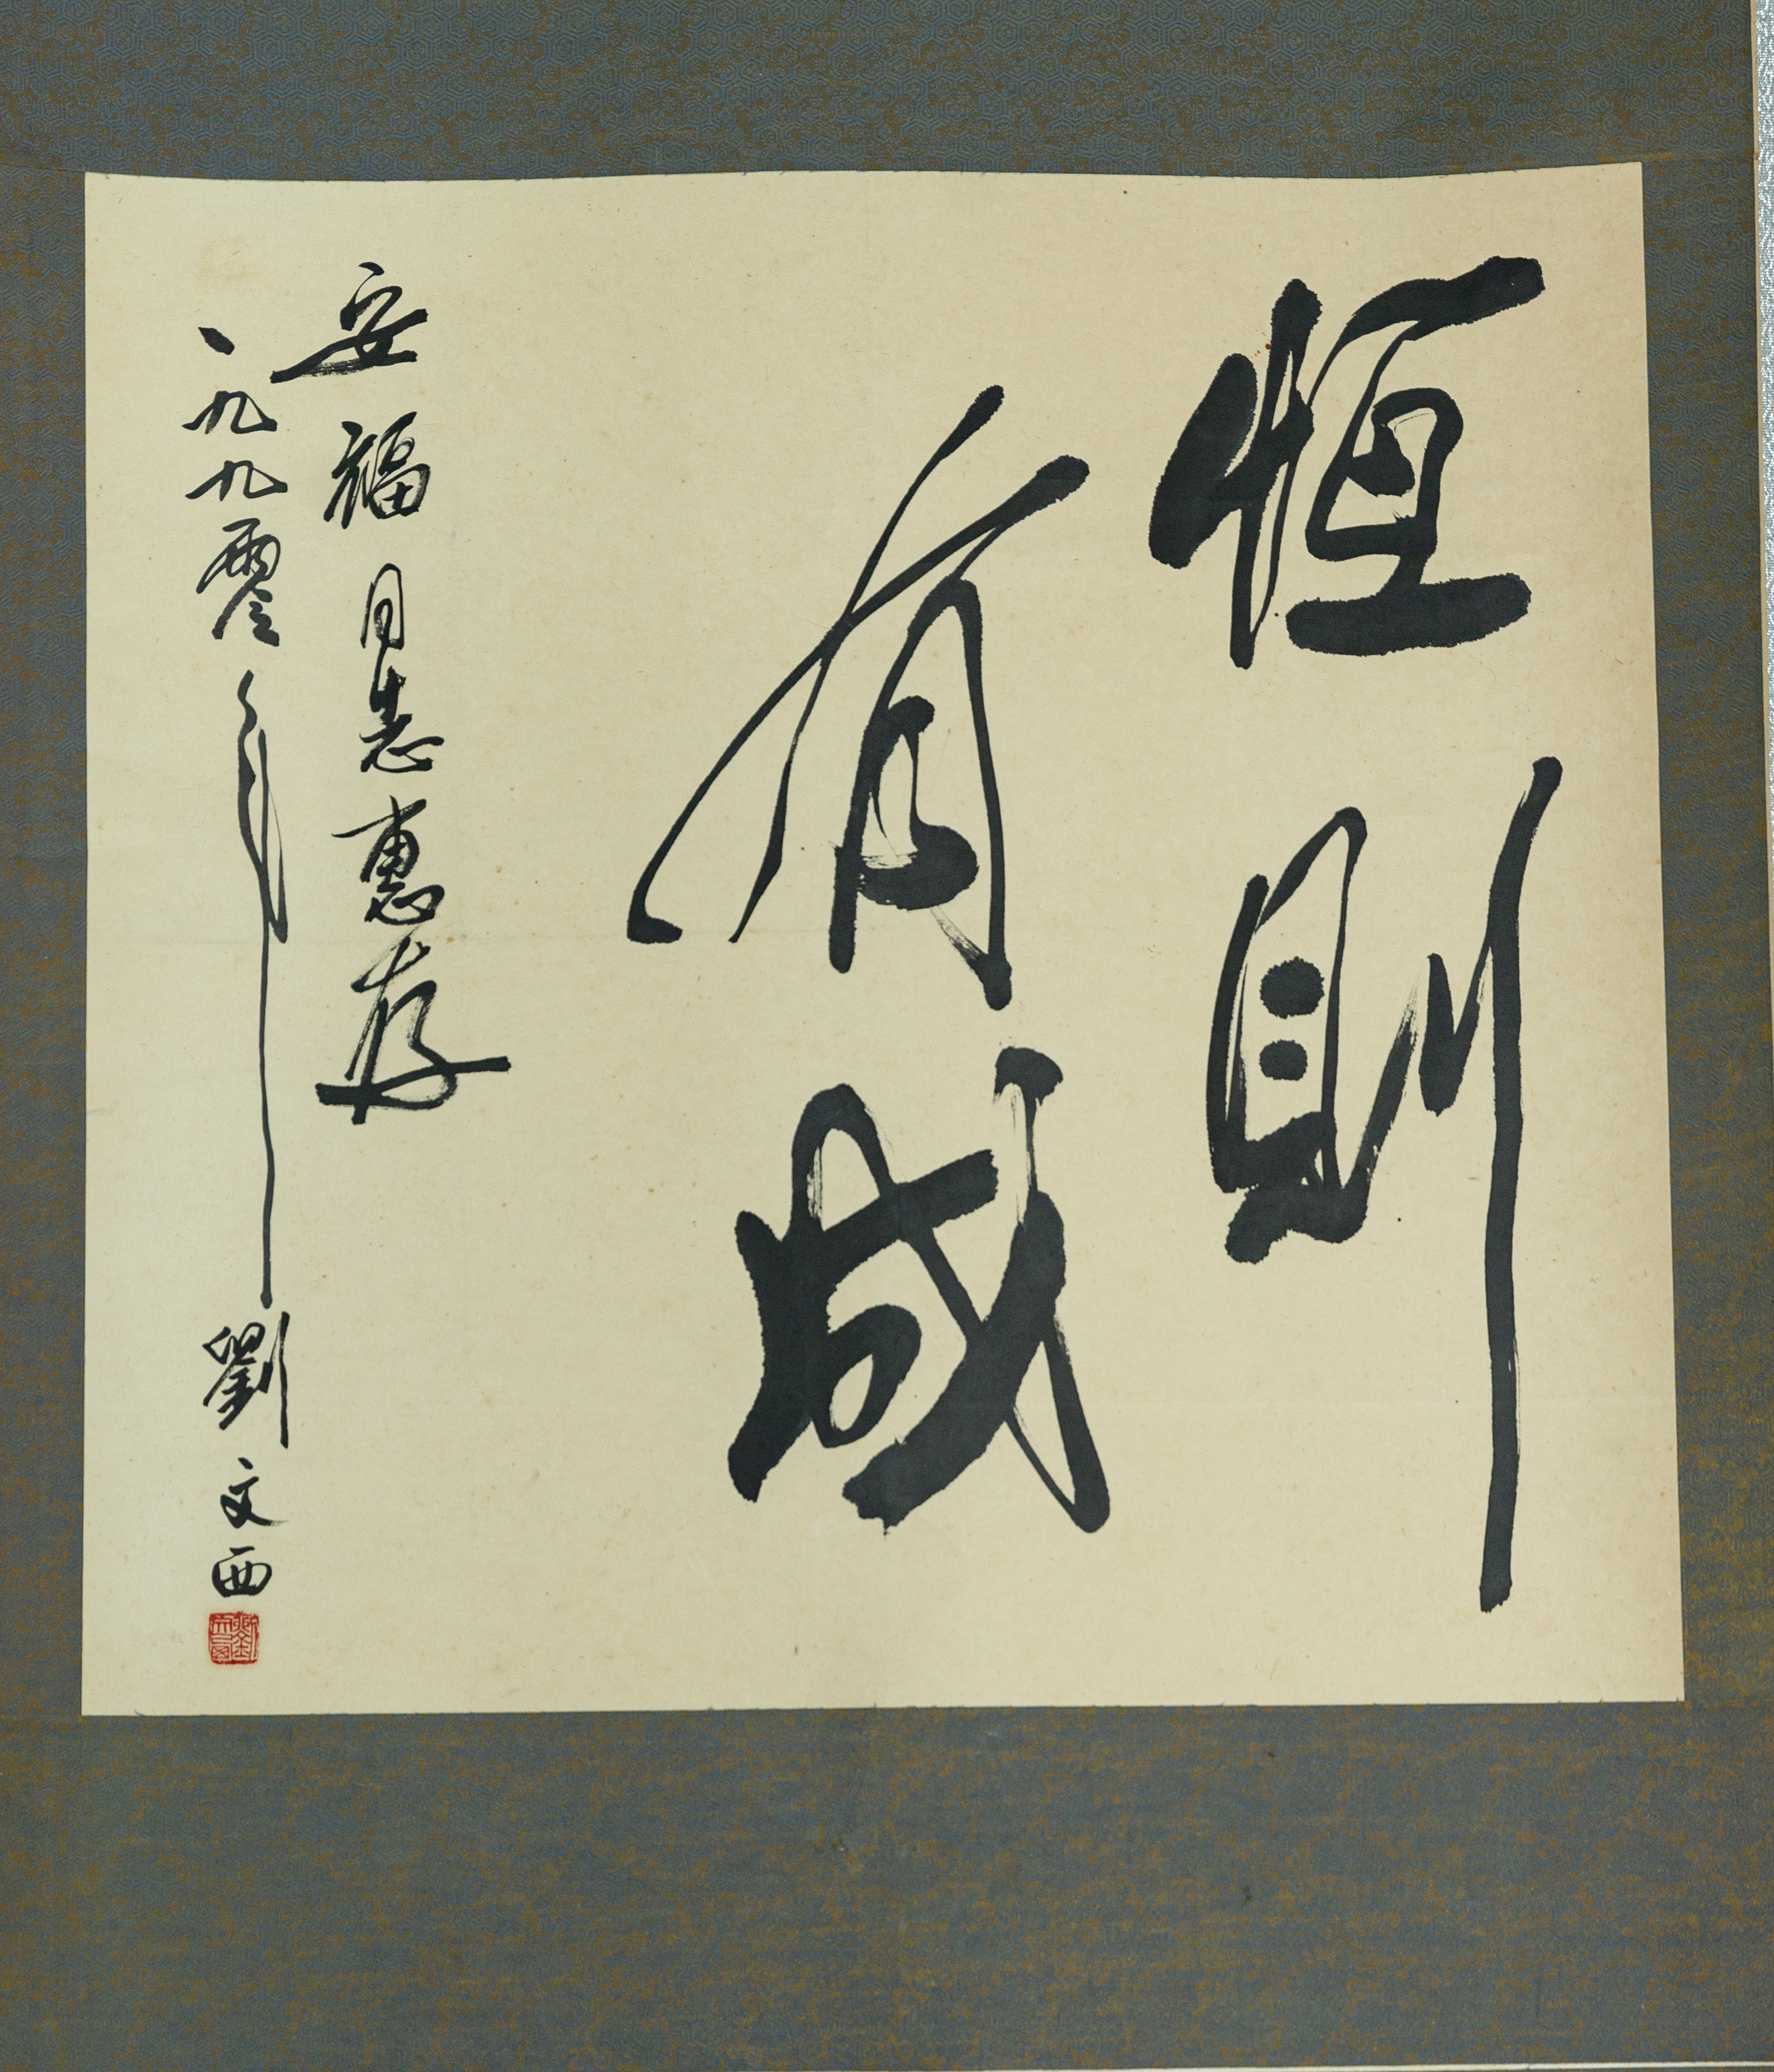 恒則
有成
安福同志惠存
一九九零年 劉文西